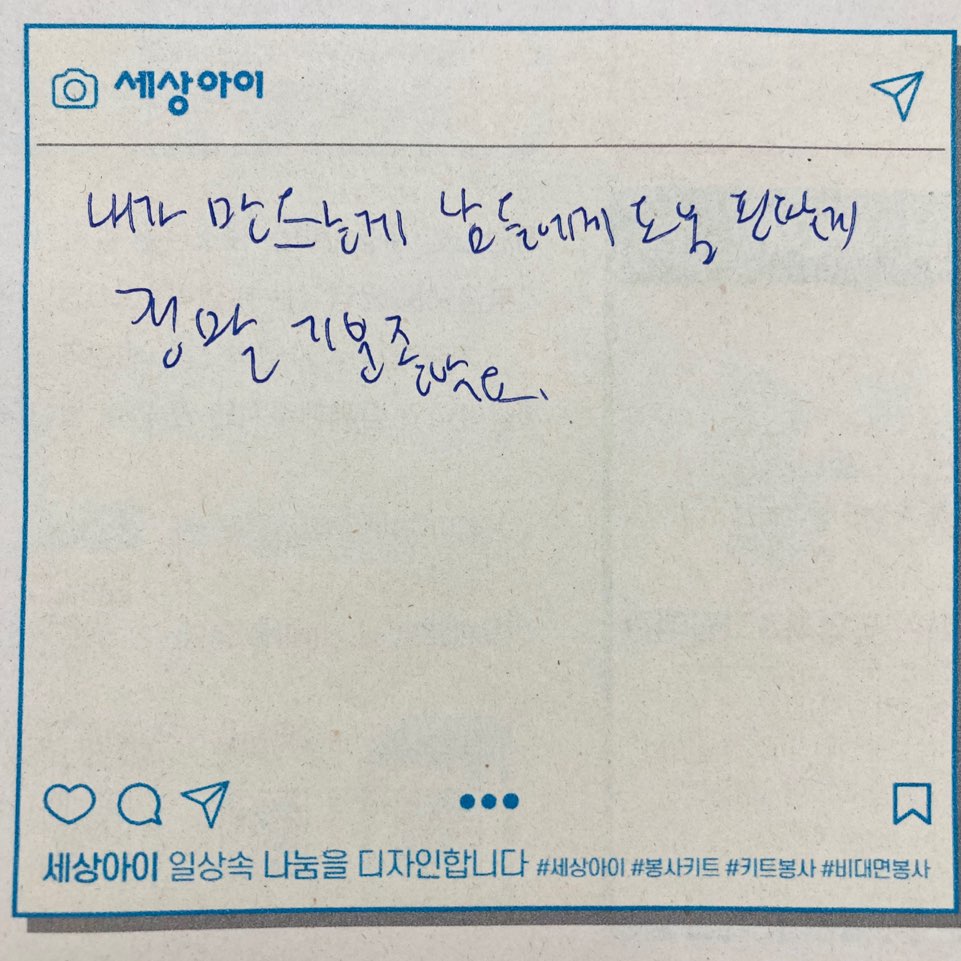 세상아이
내가 만드는게 남들에게 도움 된다는게
정말 기분 좋았어요.
세상아이 일상속 나눔을 디자인합니다 #세상아이 #봉사키트 #키트봉사 #비대면봉사